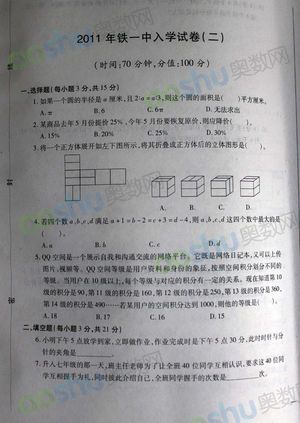 2011年铁一中入学试卷(二)
(时间:70分钟,分值:100分)
一、选择题(每小题3分,共15分)
1. 如果一个圆的半径是a厘米,且2:a=a:3,则这个圆的面积是( )平方厘米。
A. π B. 6 C. 6π D. 无法求出
2. 某商品去年5月份提价25%,今年5月份要恢复原价,则应降价( )。
A. 15% B. 20% C. 25% D. 30%
3. 将一个正方体展开如左下图所示,将其折叠成正方体后的立体图形是( )。
A. B. C. D.
4. 若四个数a,b,c,d满足a+1=b-2=c+3=d-4,则a,b,c,d这四个数中最大的是
( )。
A. a B. b C. c D. d
5. QQ空间是一个展示自我和沟通交流的网络平台。它既是网络日记本,又可以上传
图片、视频等。QQ空间等级是用户资料和身份的象征,按照空间积分划分不同的
等级。当用户在10级以上,每个等级与对应的积分有一定的关系。现在知道第10
级的积分是90,第11级的积分是160,第12级的积分是250,第13级的积分是360,
第14级的积分是490……若某用户的空间积分达到1000,则他的等级是( )。
A. 18 B. 17 C. 16 D. 15
二、填空题(每小题3分,共21分)
6. 小明下午5点放学到家,立即做作业,作业完成时是下午5点30分,此时时针与分
针的夹角是
7. 升入七年级的那一天,班主任老师为了让全班40位同学互相认识,要求这40位同
学互相握手为礼,同时彼此介绍自己,全班同学握手的次数是 次。
aoshu奥数网